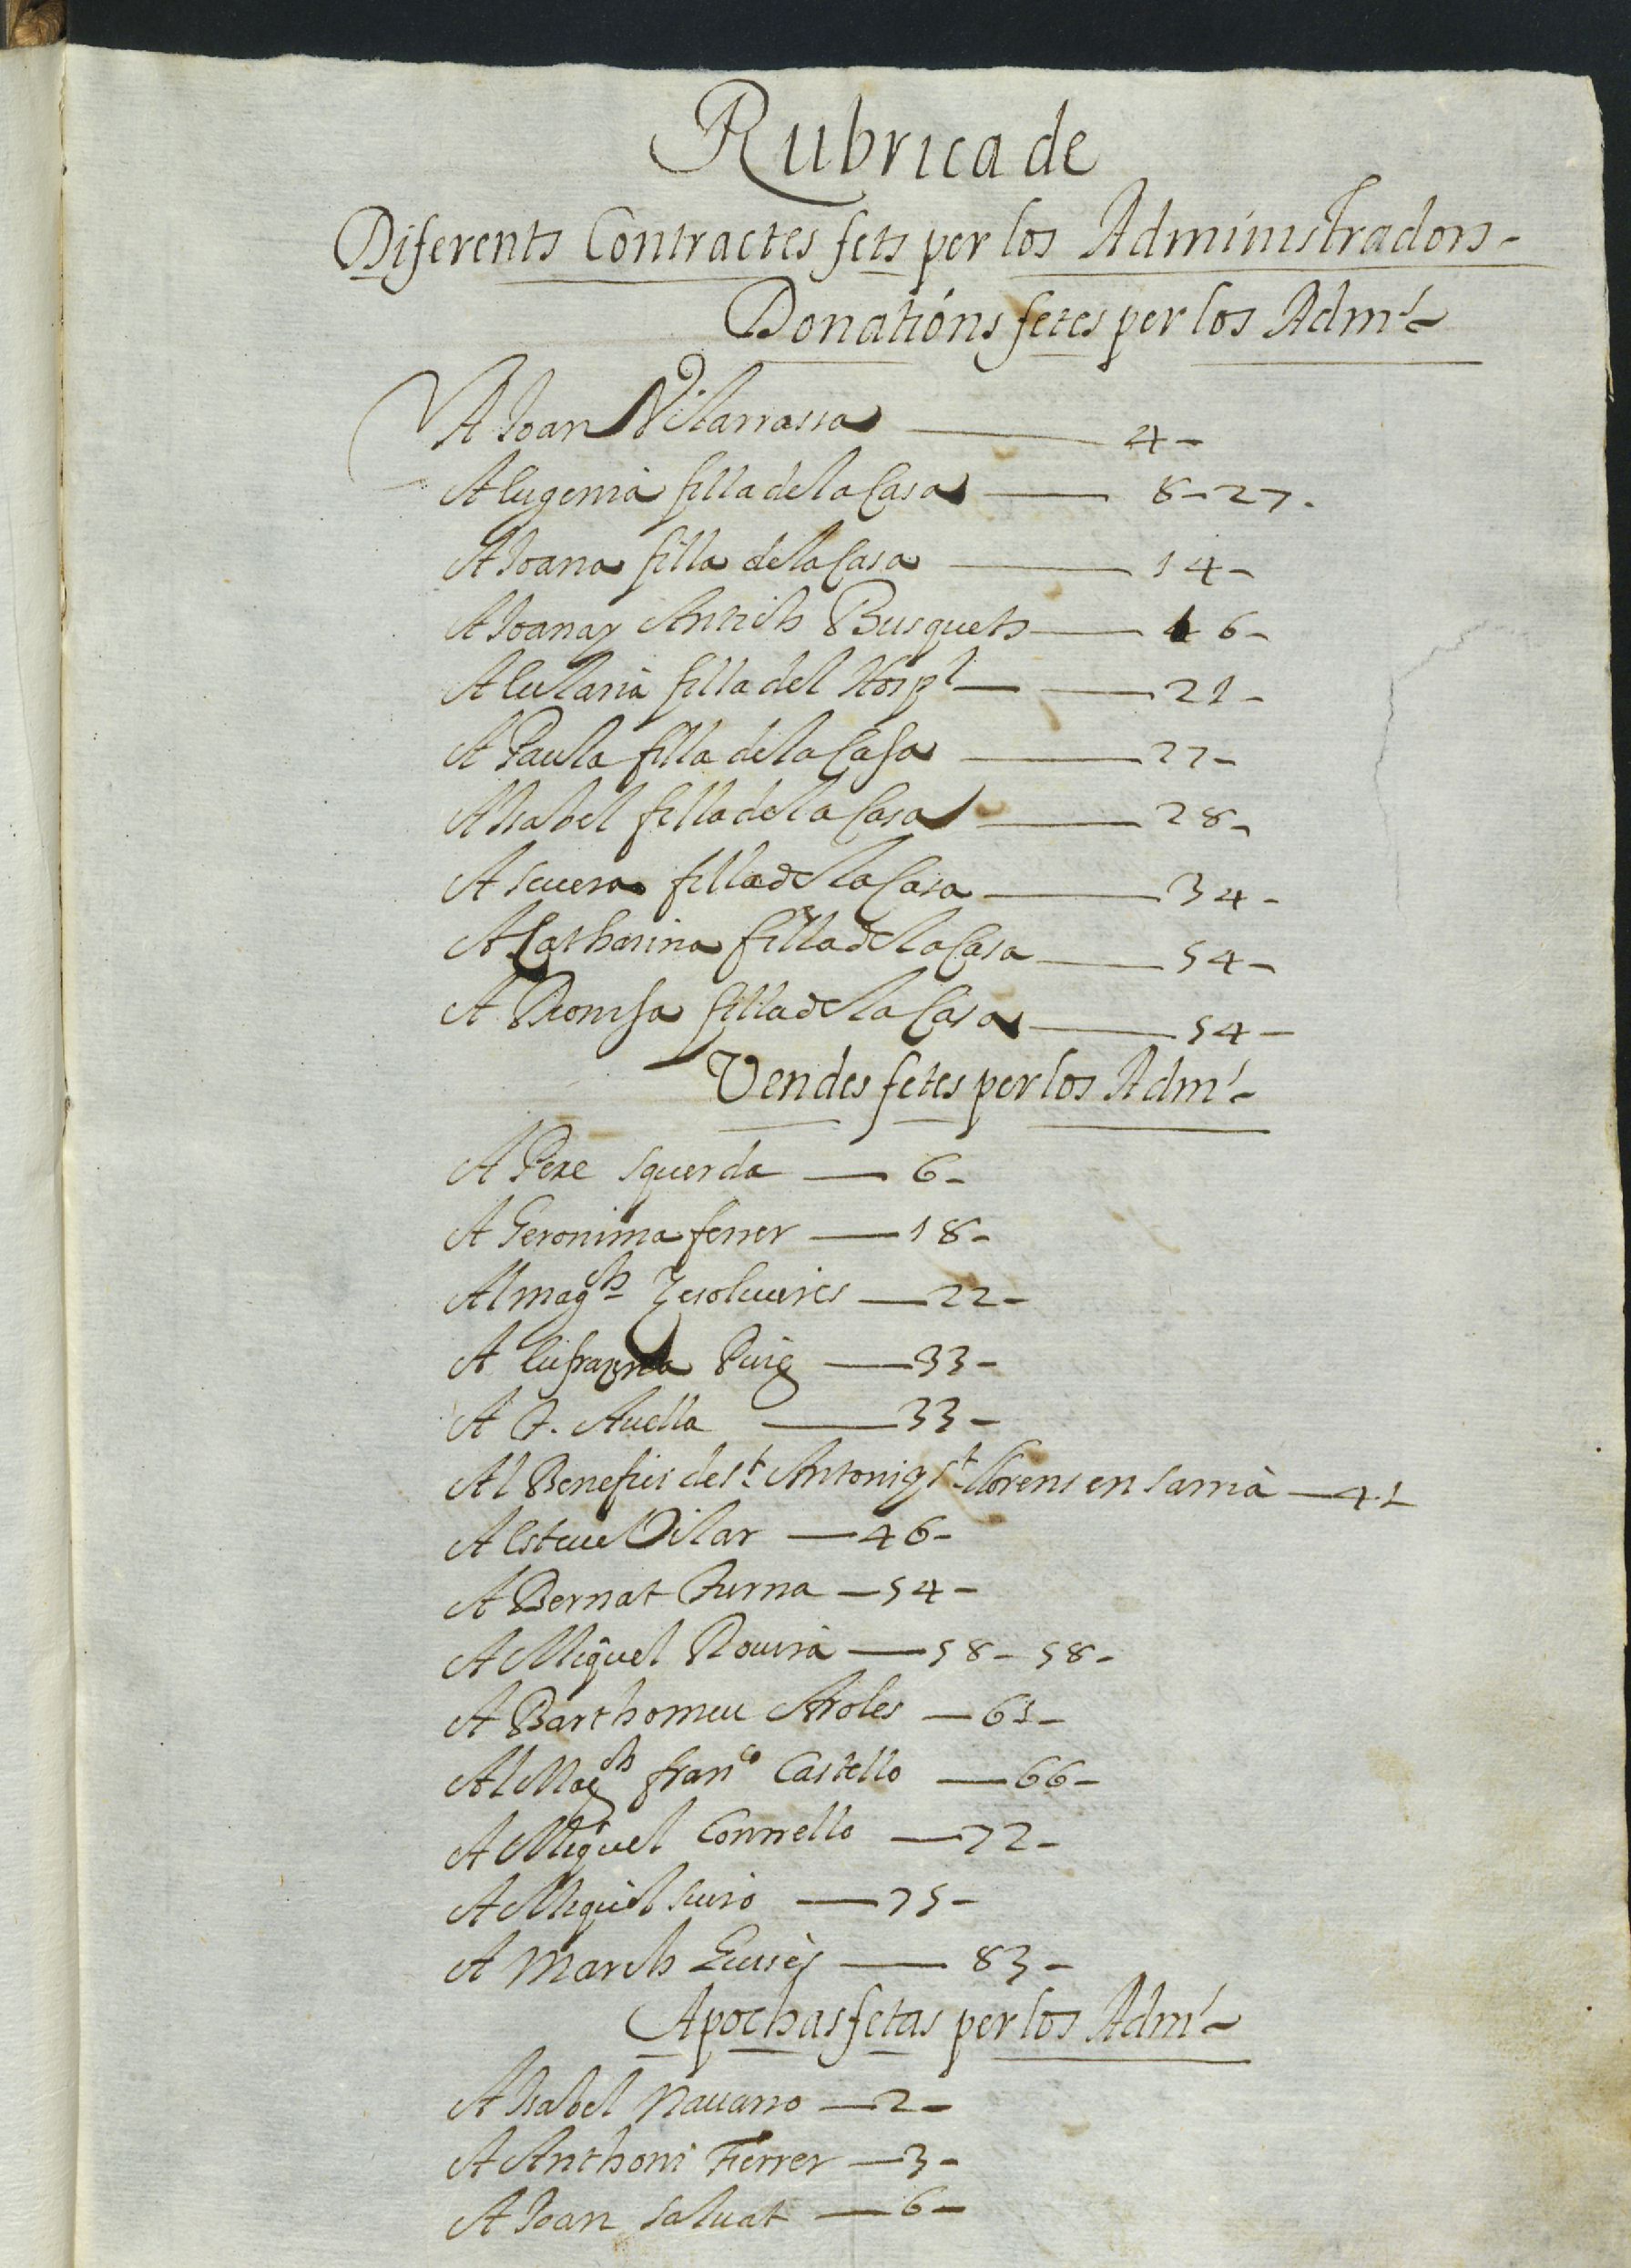 Rubrica de
Diferents Contractes fets per los Administradors -
Donatións fetes per los Adm.rs
A Joan Vilarrassa — 4 -
A Eugenia filla de la Casa — 8 - 27.
A Joana filla de la Casa — 14 -
A Joana y Antich Busquets — 16 -
A Eularia filla del Hosp.l — 21 -
A Paula filla de la Casa — 27 -
A Isabel filla de la Casa — 28 -
A Severa filla de la Casa — 34 -
A Catharina filla de la Casa — 54 -
A Dionisa filla de la Casa — 54 -
Vendes fetes per los Adm.rs
A Pere Squerda — 6 -
A Geronima ferrer — 18 -
Al mag.ch — 22 -
A Eufrasina Puig — 33 -
A F. Auella — 33 -
Al Benefici de s.t Antoni y s.t llorens en sarria — 41
A Esteue Vilar — 46 -
A Bernat Furna — 54 -
A Miquel Rouira — 58 - 58 -
A Barthomeu Aroles — 61 -
Al Mag.ch fran.co Castello — 66 -
A Miquel Cornello — 72 -
A Miquel suro — 75 -
A March — 83 -
Apochas fetas per los Adm.rs
A Isabel Nauarro — 2 -
A Anthoni Ferrer — 3 -
A Joan saluat — 6 -